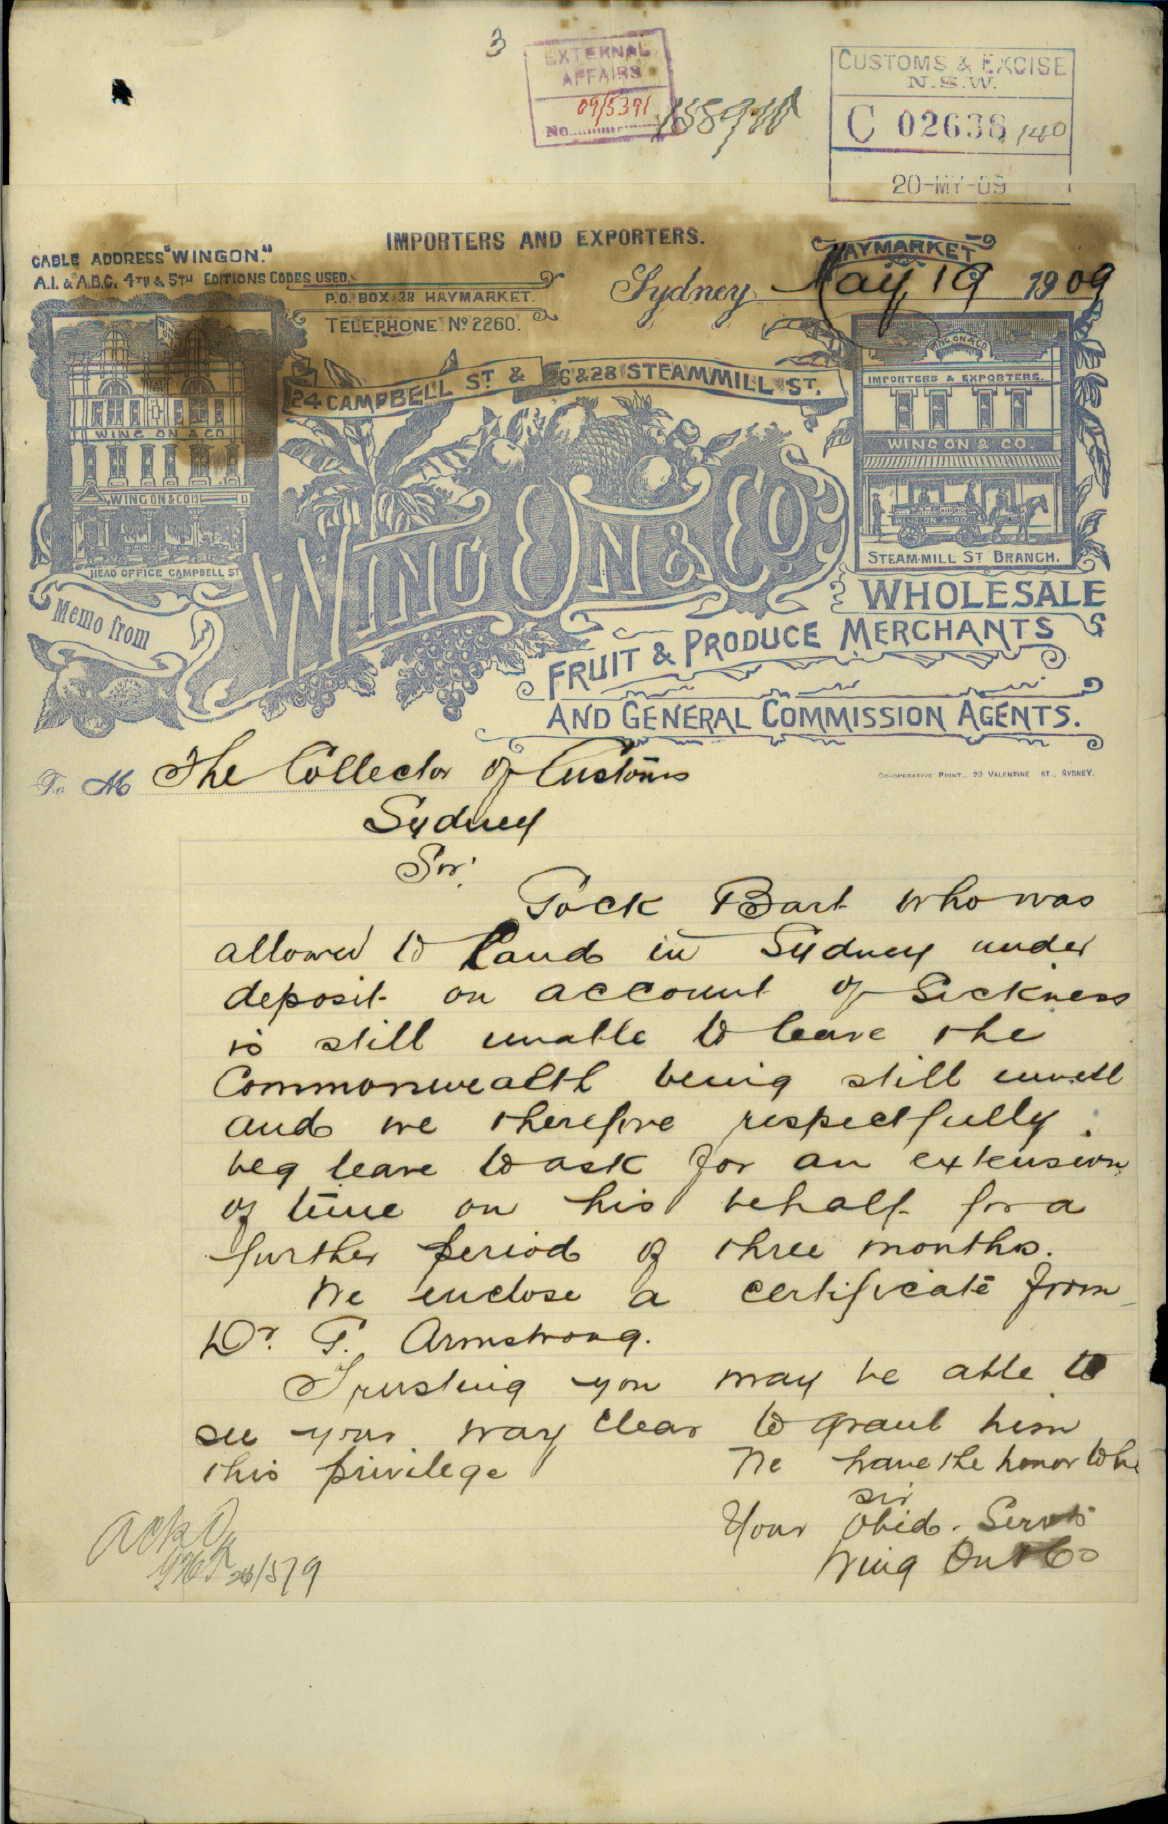 3
EXTERNAL
AFFAIRS
09/5391
No
CUSTOMS & EXCISE
N.S.W.
C 02638 /40
20-MY-09
IMPORTERS AND EXPORTERS.
CABLE ADDRESS "WINGON."
A.I. & A.B.C. 4TH & 5TH EDITIONS CODES USED.
P.O. BOX 38 HAYMARKET.
TELEPHONE Nº 2260.
HAYMARKET
Sydney May 19 1909
24 CAMPBELL ST & 26 & 28 STEAMMILL ST.
WING ON & CO
WING ON & CO
HEAD OFFICE CAMPBELL ST
WING ON & CO.
IMPORTERS & EXPORTERS.
WING ON & CO.
STEAM-MILL ST BRANCH.
Memo from
WING ON & CO.
WHOLESALE
FRUIT & PRODUCE MERCHANTS
AND GENERAL COMMISSION AGENTS.
CO-OPERATIVE PRINT., 22 VALENTINE ST., SYDNEY.
To M The Collector of Customs
Sydney
Sir,
Pock Bart who was
allowed to land in Sydney under
deposit on account of Sickness
is still unable to leave the
Commonwealth being still unwell
and we therefore respectfully
beg leave to ask for an extension
of time on his behalf for a
further period of three months.
We enclose a certificate from
Dr. P. Armstrong.
Trusting you may be able to
see your way clear to grant him
this privilege
We have the honor to be
sir
Your Obed. Servts
Wing On & Co
Ackd